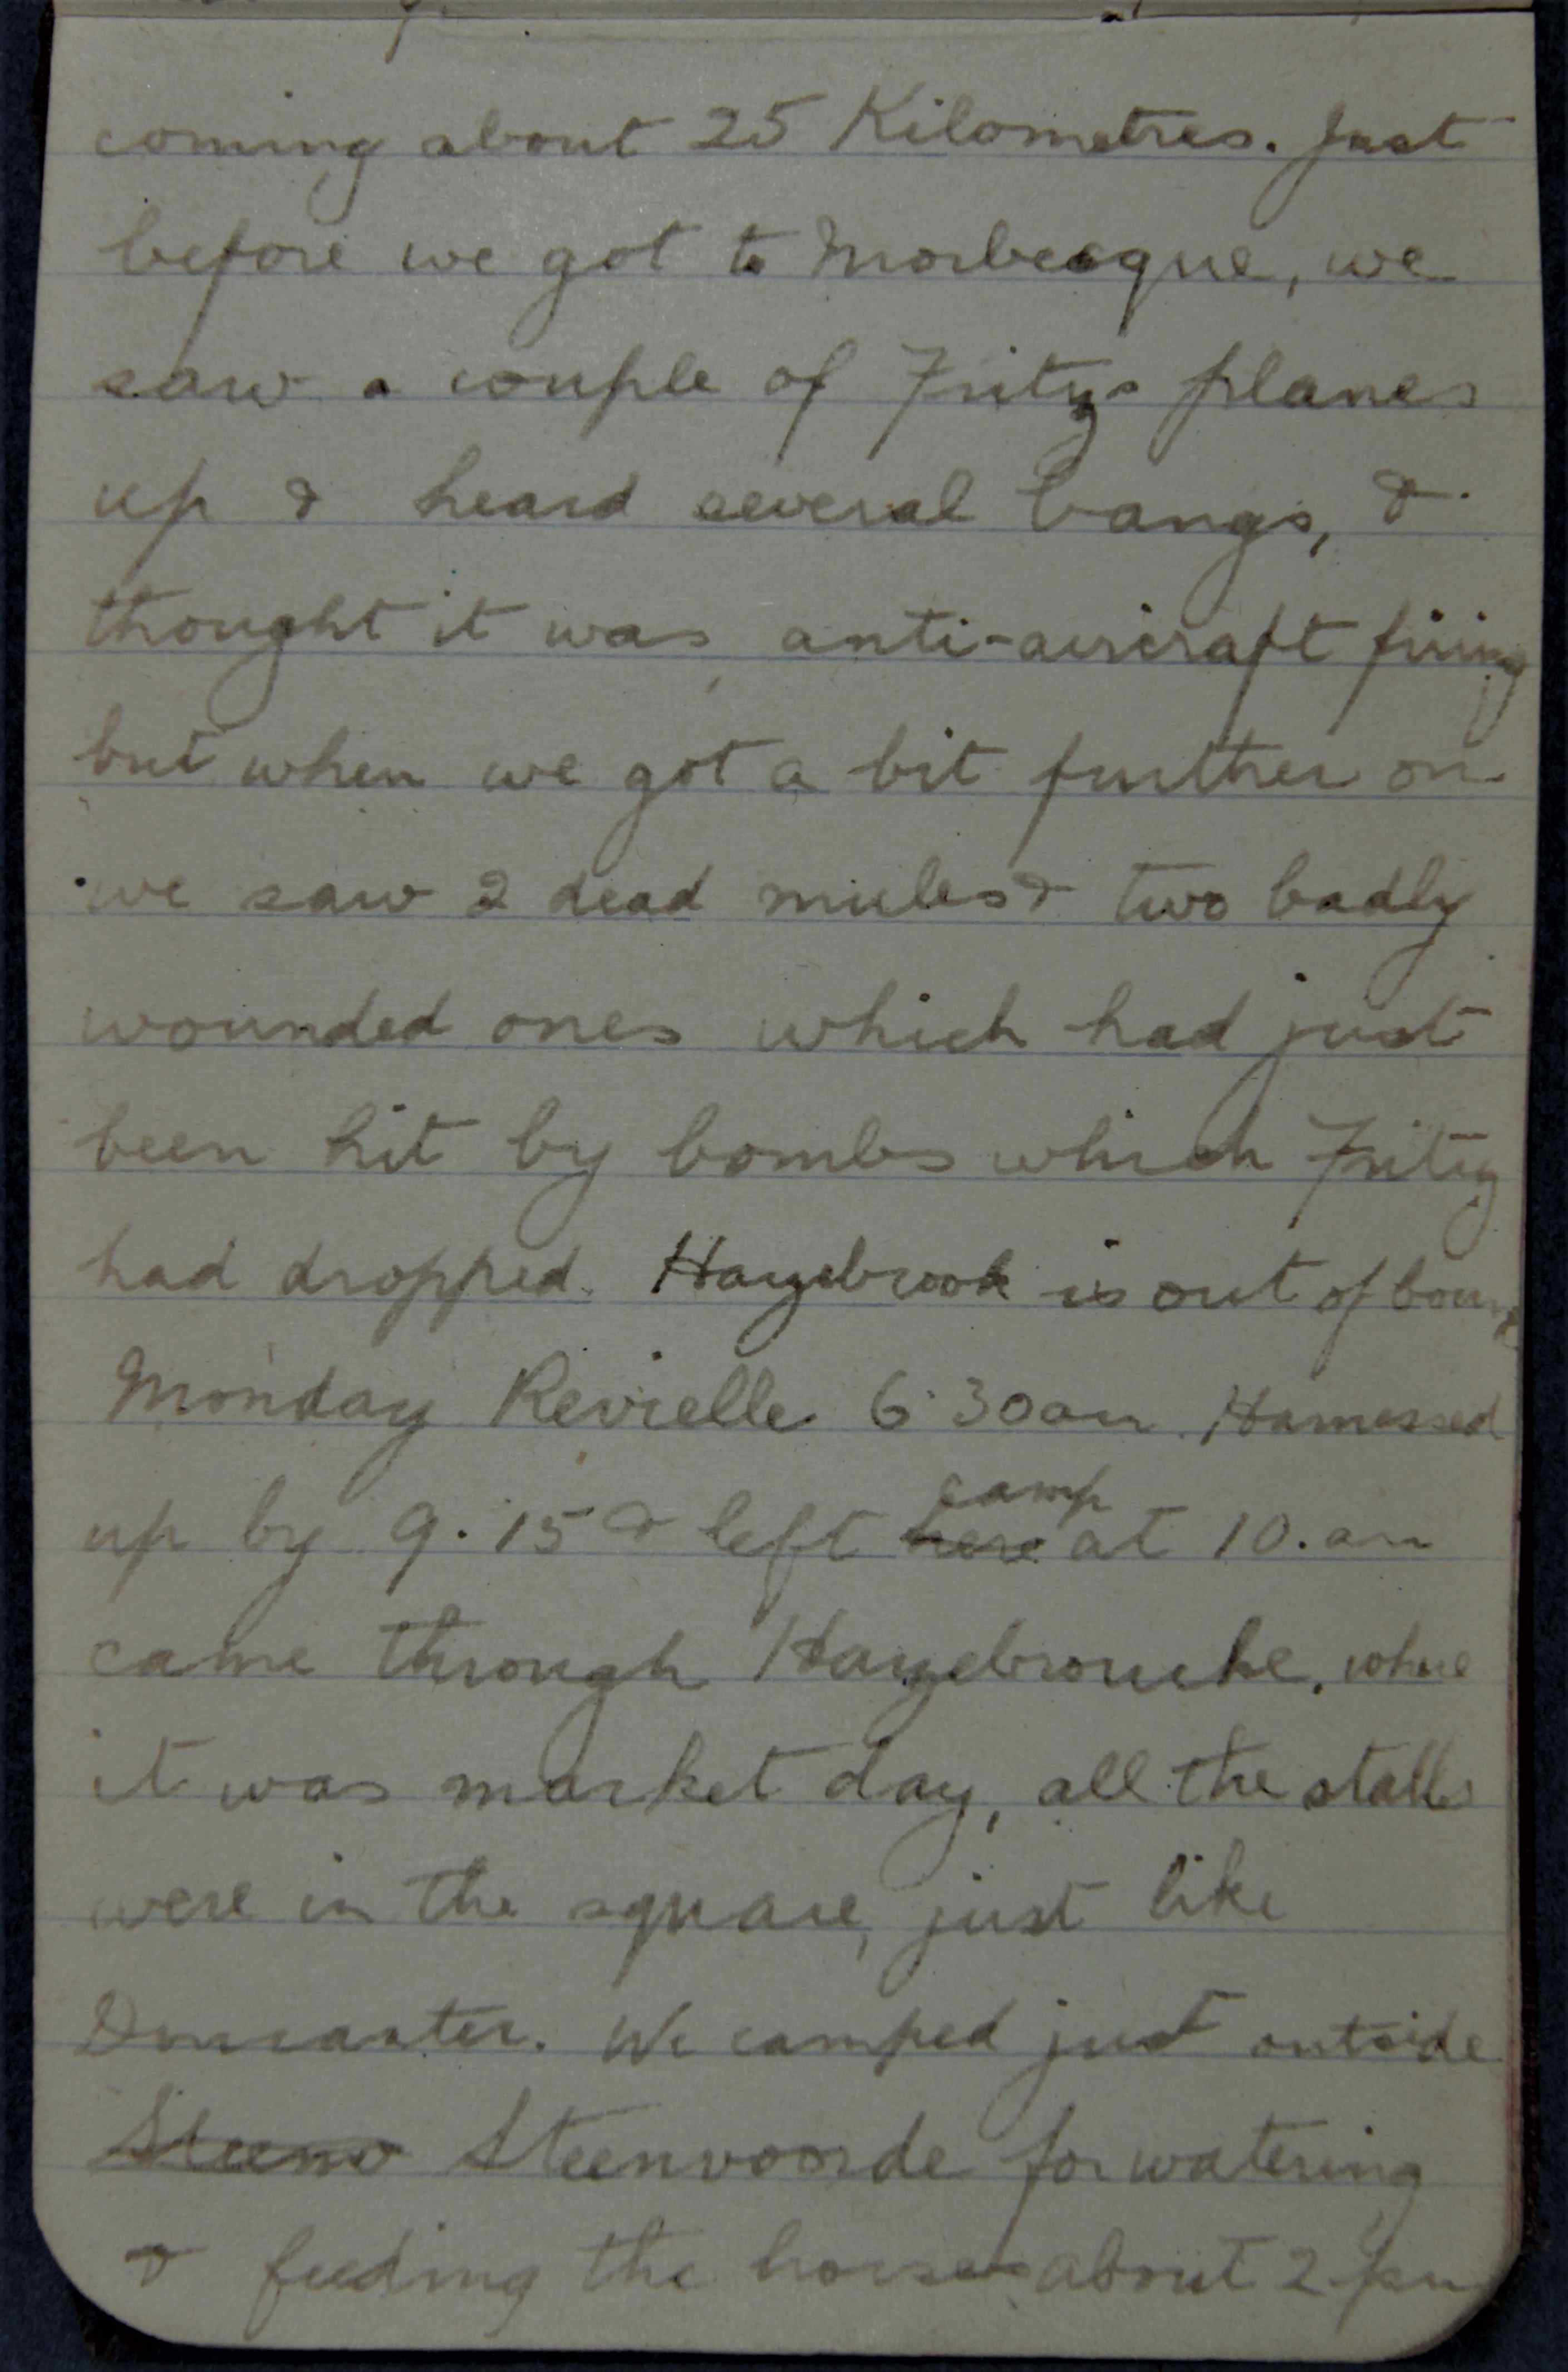 coming about 25 Kilometres. Just
before we got to Morbecque, we
saw a couple of Fritzs planes
up & heard several bangs, &
thought it was anti-aircraft firing
but when we got a bit further on
we saw 2 dead mules & two badly
wounded ones which had just
been hit by bombs which Fritz
had dropped. Hazebrook is out of bounds
Monday Revielle 6.30am. Harnessed
up by 9.15 & left here camp at 10.am
came through Hazebroucke. where
it was market day, all the stalls
were in the square, just like
Doncaster. We camped just outside
Steenv Steenvoorde for watering
& feeding the horses about 2 pm